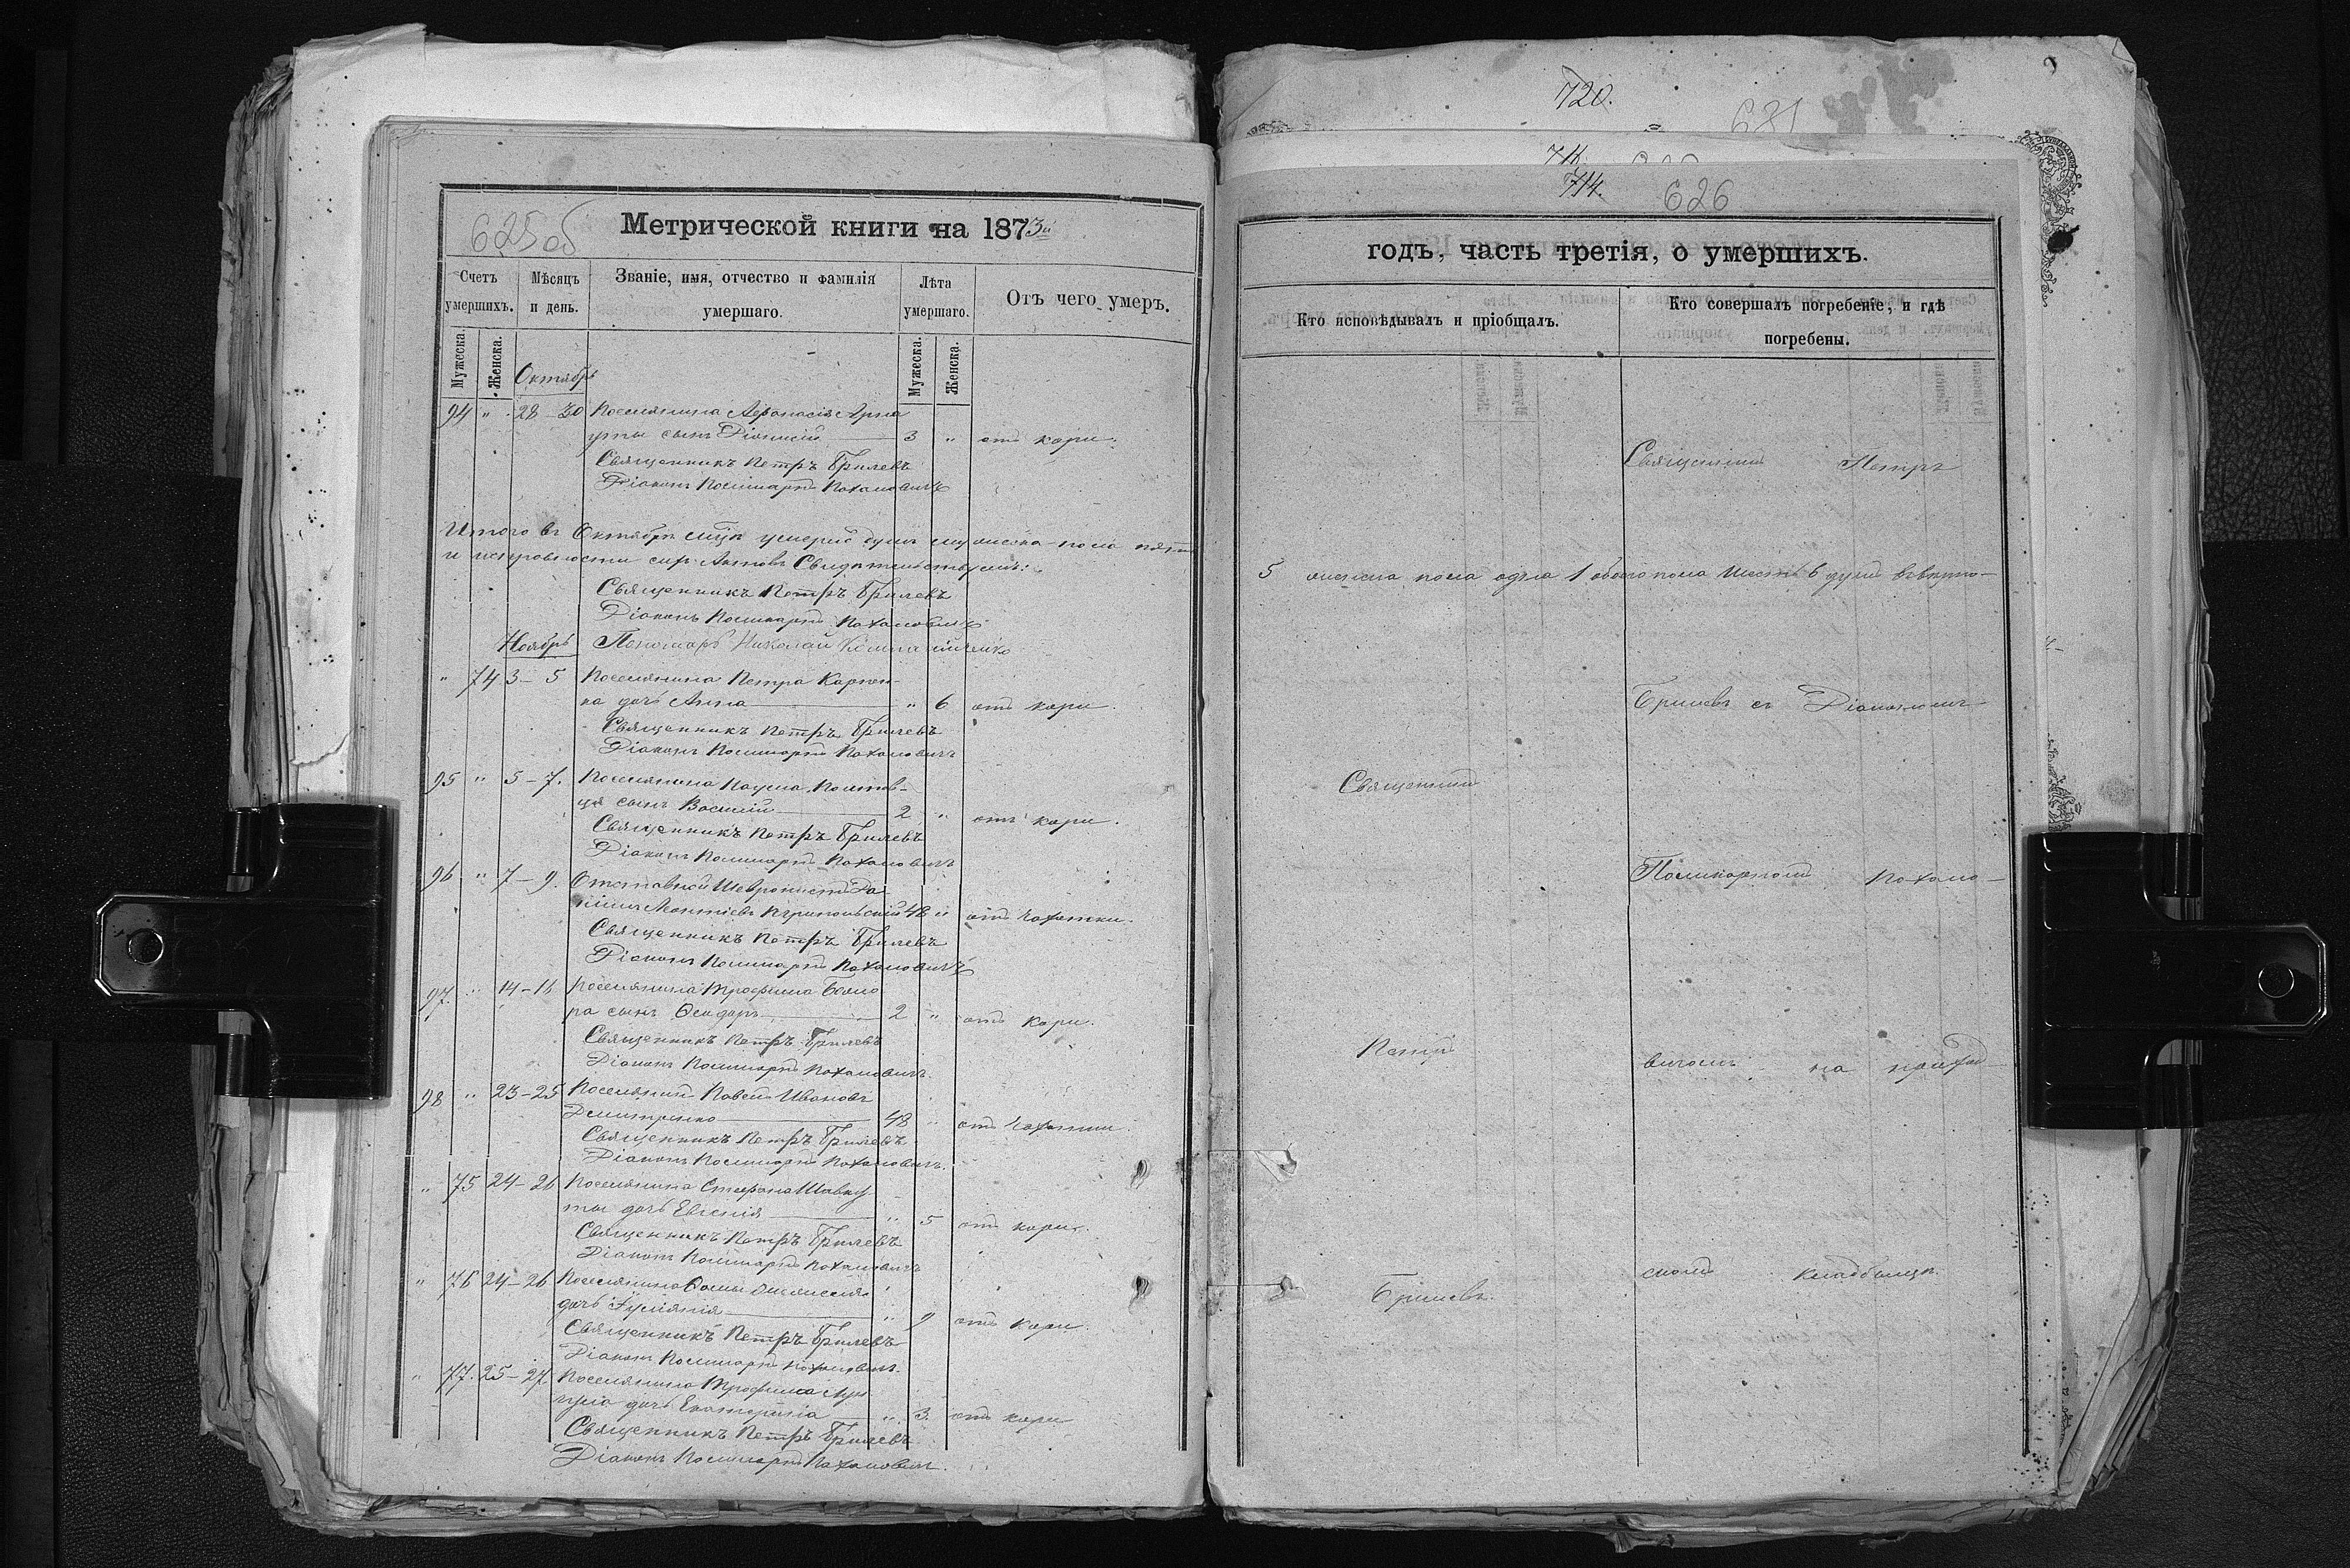 625 об
Метрической книги на 1873й
Счетъ умершихъ.
Мѣсяцъ и день.
Званіе, имя, отчество и фамилія умершаго.
Лѣта умершаго.
Отъ чего умеръ.
Мужеска.
Женска.
Мужеска.
Женска.
Октябрь
94 " 28-30 Поселянина Афанасія Арна
уты сынъ Діонисій 3 " отъ кори.
Священникъ Петръ Брилевъ
Діаконъ Поликарпъ Пахаловичъ
Итого въ Октябрѣ умерло душъ мужеска пола пять
и исправности сихъ Актовъ Свидѣтельствуемъ:
Священникъ Петръ Брилевъ
Діаконъ Поликарпъ Пахаловичъ
Ноябрь Пономарь Николай
" 74 3-5 Поселянина Петра Карпен-
ка дочь Анна " 6 отъ кори.
Священникъ Петръ Брилевъ
Діаконъ Поликарпъ Пахаловичъ
95 " 5-7. Поселянина Наума Полтав-
ца сынъ Василій 2 " отъ кори.
Священникъ Петръ Брилевъ
Діаконъ Поликарпъ Пахаловичъ
96 " 7-9. Отставной Да-
48 " отъ чахотки.
Священникъ Петръ Брилевъ
Діаконъ Поликарпъ Пахаловичъ
97. " 14-16 Поселянина Трофима
ра сынъ Ѳеодоръ 2 " отъ кори.
Священникъ Петръ Брилевъ
Діаконъ Поликарпъ Пахаловичъ
98 " 23-25 Поселянинъ Павелъ Ивановъ
Демитренко 48 " отъ чахотки.
Священникъ Петръ Брилевъ
Діаконъ Поликарпъ Пахаловичъ.
" 75 24-26 Поселянина Стефана Шавку
ты дочь Евгенія " 5 отъ кори.
Священникъ Петръ Брилевъ
Діаконъ Поликарпъ Пахаловичъ
" 76 24-26 Поселянина Ѳомы
дочь Іуліанія " 9 отъ кори.
Священникъ Петръ Брилевъ
Діаконъ Поликарпъ Пахаловичъ.
" 77. 25-27 Поселянина Трофима
дочь Екатерина " 3. отъ кори
Священникъ Петръ Брилевъ
Діаконъ Поликарпъ Пахаловичъ.
720.
631
714.
626
годъ, часть третія, о умершихъ.
Кто исповѣдывалъ и пріобщалъ.
Кто совершалъ погребеніе, и гдѣ погребены.
Священникъ Петръ
5 женска пола одна 1 обоего пола шесть 6 душъ
Брилевъ съ Діакономъ
Священникъ
Поликарпомъ Пахало-
Петръ
вичемъ на приход-
скомъ кладбищѣ.
Брилевъ.